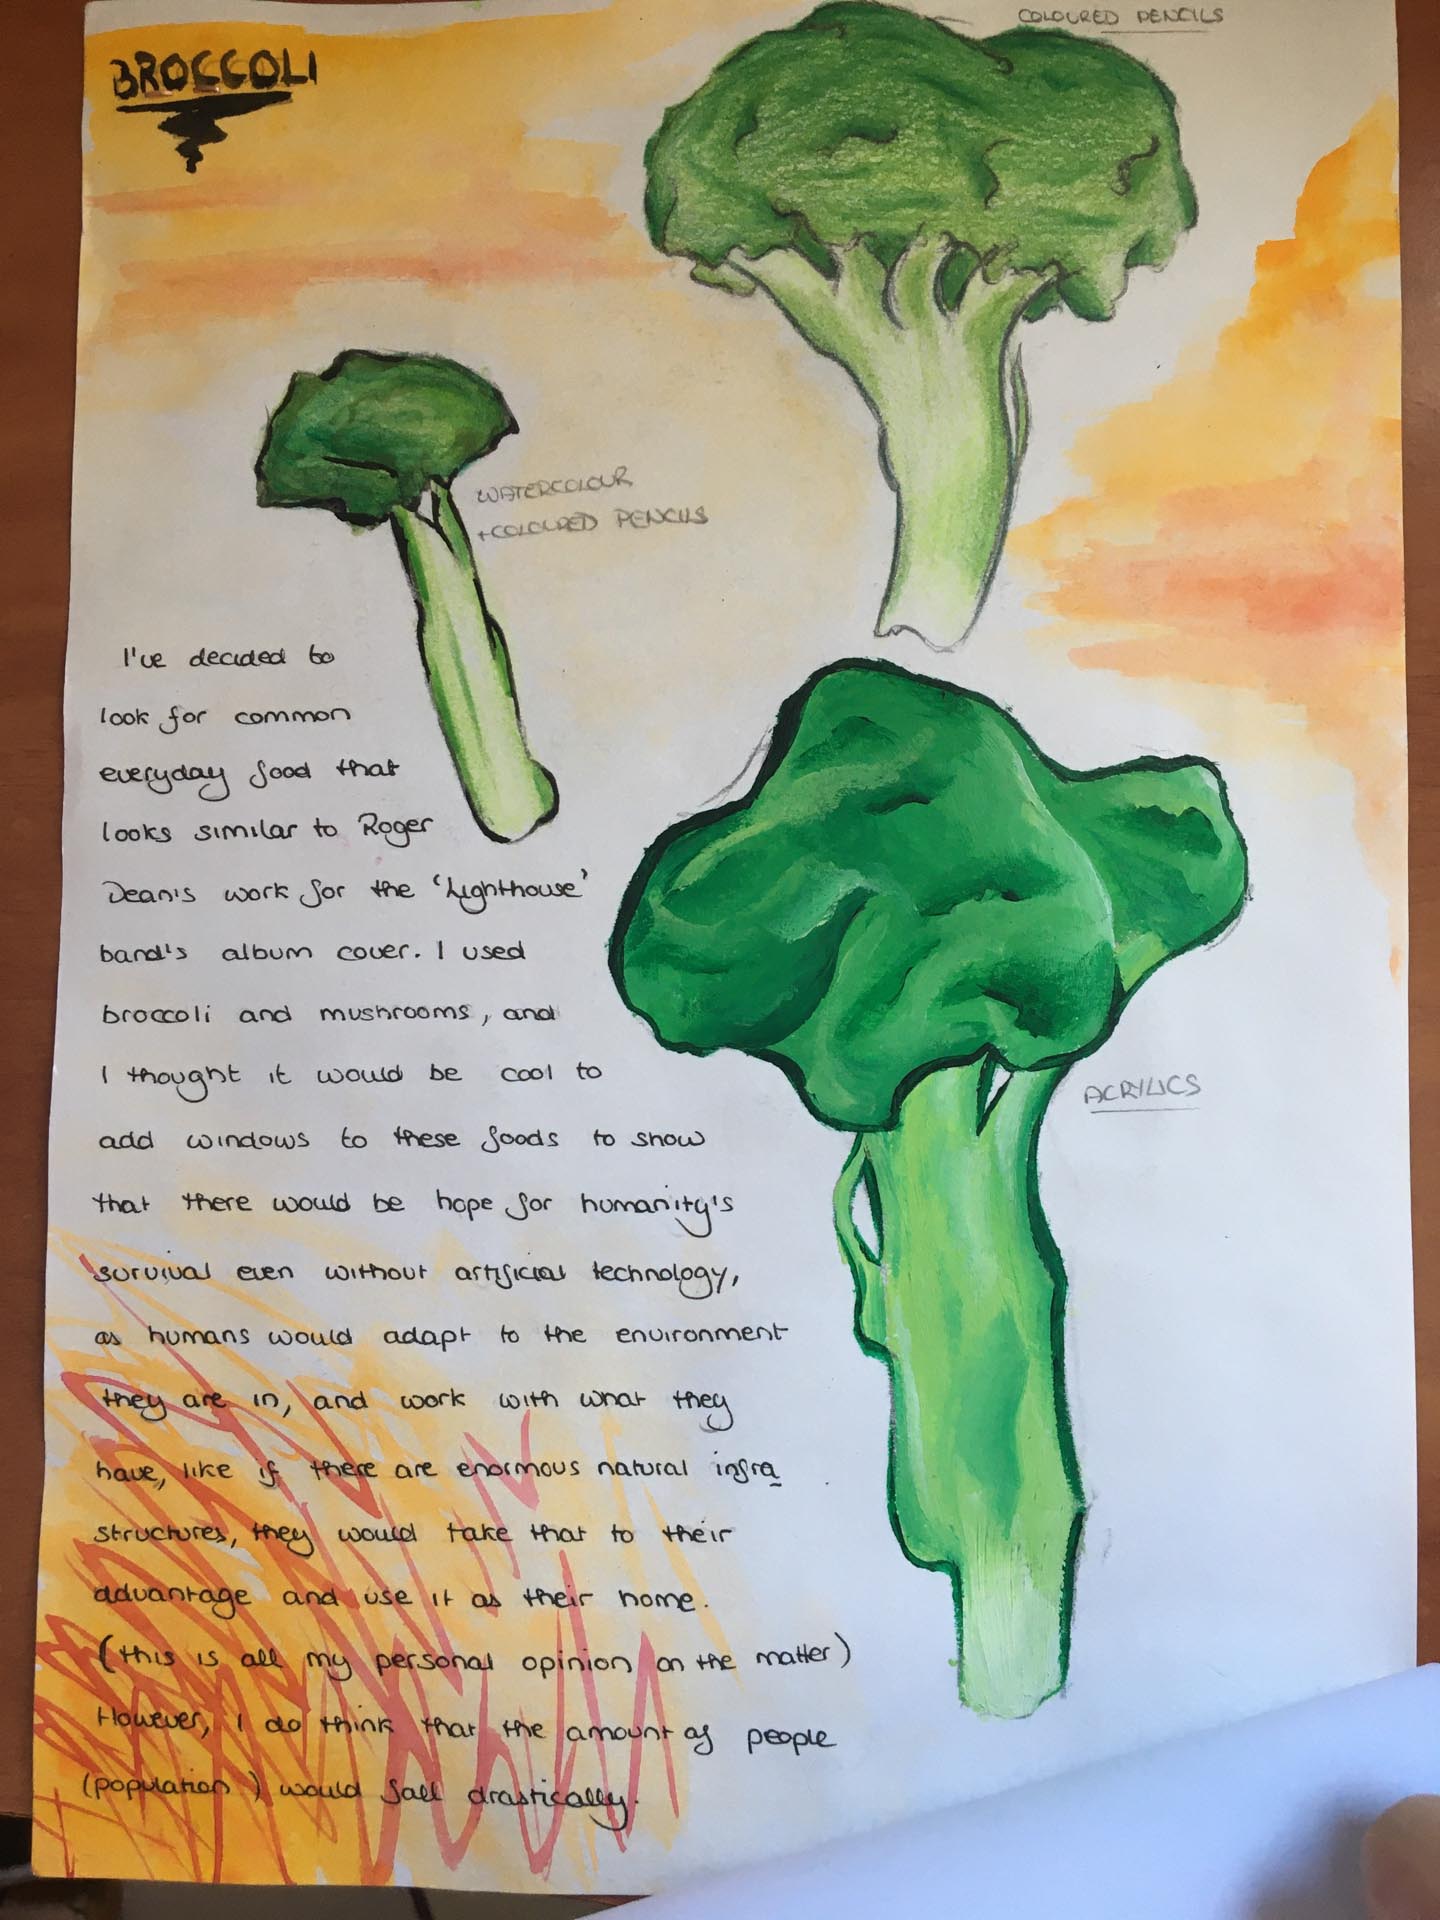 COLOURED PENCILS
BROCCOLI
WATERCOLOUR
+COLOURED PENCILS
I've decided to
look for common
everyday food that
looks similar to Roger
Dean's work for the 'Lighthouse'
band's album cover. I used
broccoli and mushrooms, and
I thought it would be cool to
add windows to these foods to show
that there would be hope for humanity's
survival even without artificial technology,
as humans would adapt to the environment
they are in, and work with what they
have, like if there are enormous natural infra
structures, they would take that to their
advantage and use it as their home.
(this is all my personal opinion on the matter)
However, I do think that the amount of people
(population) would fall drastically.
ACRYLICS